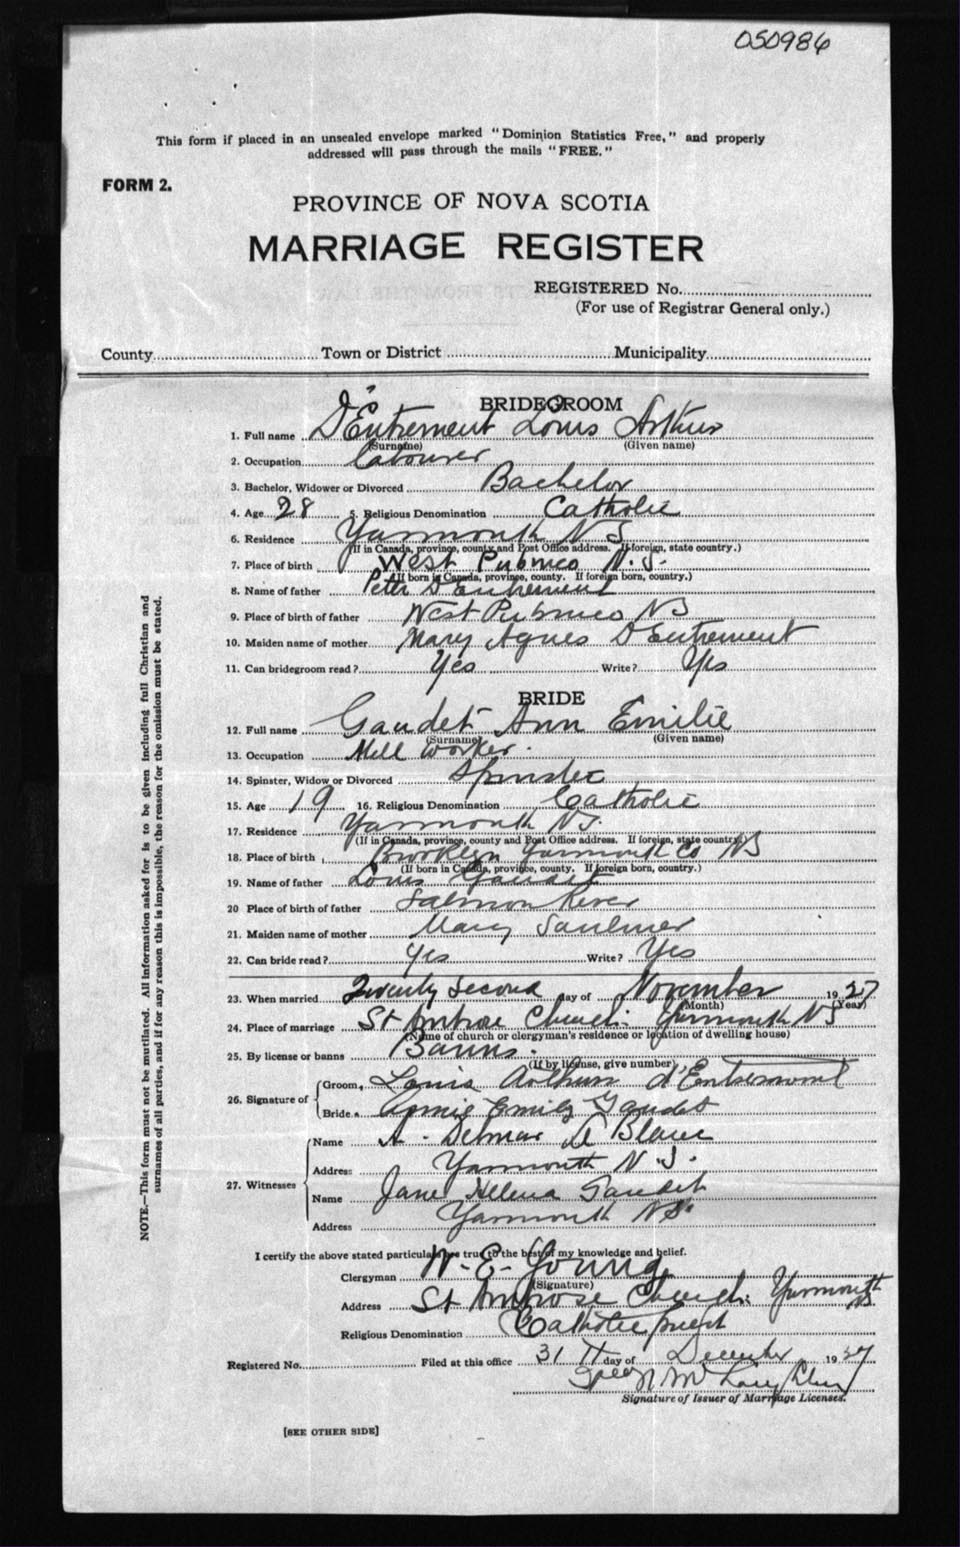 050986
This form if placed in an unsealed envelope marked "Dominion Statistics Free," and properly
addressed will pass through the mails "FREE."
FORM 2.
PROVINCE OF NOVA SCOTIA
MARRIAGE REGISTER
REGISTERED No.
(For use of Registrar General only.)
County Town or District Municipality
BRIDEGROOM
1. Full name D'Entremont Louis Arthur
(Surname) (Given name)
2. Occupation Labourer
3. Bachelor, Widower or Divorced Bachelor
4. Age 28 5. Religious Denomination Catholic
6. Residence Yarmouth N S
(If in Canada, province, county and Post Office address. If foreign, state country.)
7. Place of birth West Pubnico N.S.
(If born in Canada, province, county. If foreign born, country.)
8. Name of father Peter D'Entremont
9. Place of birth of father West Pubnico NS
10. Maiden name of mother Mary Agnes D'Entremont
11. Can bridegroom read? Yes Write? Yes
BRIDE
12. Full name Gaudet Ann Emilie
(Surname) (Given name)
13. Occupation Mill Worker.
14. Spinster, Widow or Divorced Spinster
15. Age 19 16. Religious Denomination Catholic
17. Residence Yarmouth N.S.
(If in Canada, province, county and Post Office address. If foreign, state country)
18. Place of birth Brooklyn Yarmouth Co NS
(If born in Canada, province, county. If foreign born, country.)
19. Name of father Louis Gaudet
20 Place of birth of father Salmon River
21. Maiden name of mother Mary Saulnier
22. Can bride read? Yes Write? Yes
23. When married Twenty Second day of November 1927
(Month) (Year)
24. Place of marriage St Ambrose Church Yarmouth NS
(Name of church or clergyman's residence or location of dwelling house)
25. By license or banns Banns.
(If by license, give number)
26. Signature of
Groom, Louis Arthur d'Entremont
Bride Annie Emily Gaudet
27. Witnesses
Name A. Delmar Le Blanc
Address Yarmouth N.S.
Name Jane Helena Gaudet
Address Yarmouth NS.
I certify the above stated particulars are true to the best of my knowledge and belief.
Clergyman W. E. Young
(Signature)
Address St Ambrose Church Yarmouth NS
Religious Denomination Catholic priest
Registered No. Filed at this office 31st day of December 1927
McLaughlin
Signature of Issuer of Marriage Licenses.
[SEE OTHER SIDE]
NOTE.—This form must not be mutilated. All information asked for is to be given including full Christian and
surnames of all parties, and if for any reason this is impossible, the reason for the omission must be stated.